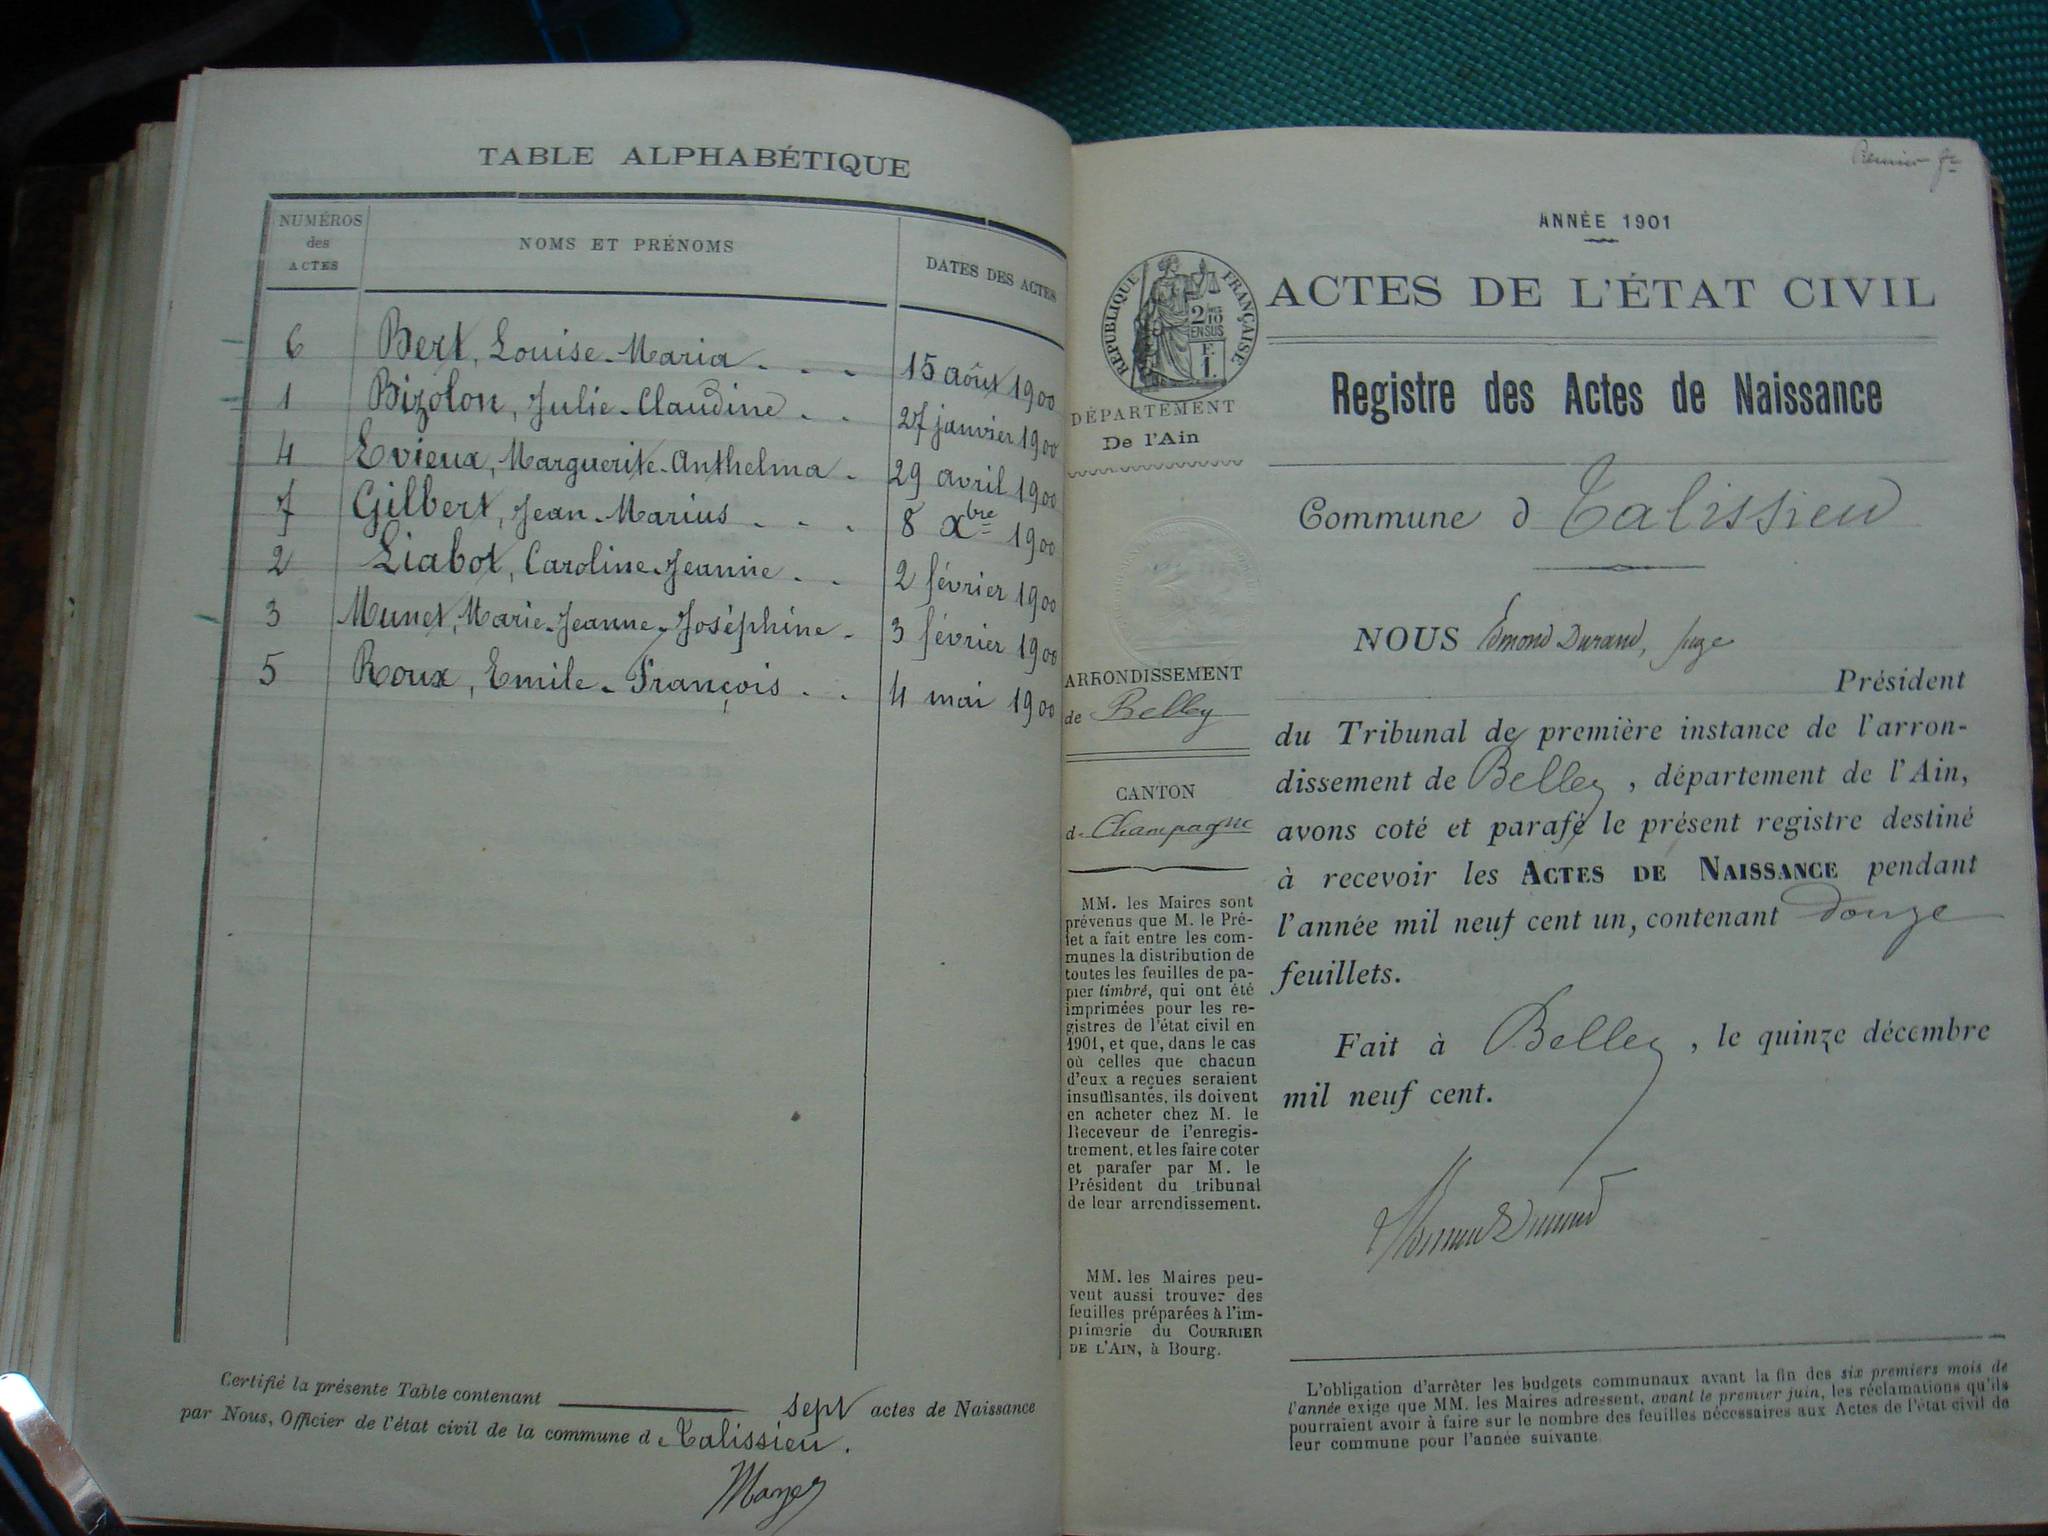 TABLE ALPHABÉTIQUE
NUMÉROS
des
ACTES
NOMS ET PRÉNOMS
DATES DES ACTES
6 Bert, Louise-Maria 15 août 1900
1 Bizolon, Julie-Claudine 27 janvier 1900
4 Evieux, Marguerite-Anthelma 29 avril 1900
7 Gilbert, Jean-Marius 8 Xbre 1900
2 Liabot, Caroline-Jeanne 2 février 1900
3 Munet, Marie-Jeanne-Joséphine 3 février 1900
5 Roux, Emile-François 4 mai 1900
Certifié la présente Table contenant sept actes de Naissance
par Nous, Officier de l'état civil de la commune de Talissieu.
Premier
ANNÉE 1901
RÉPUBLIQUE FRANÇAISE
2/10
EN SUS
F.
1.
ACTES DE L'ÉTAT CIVIL
Registre des Actes de Naissance
DÉPARTEMENT
De l'Ain
Commune d Talissieu
NOUS Edmond Durand, Juge
Président
ARRONDISSEMENT
de Belley
CANTON
d Champagne
du Tribunal de première instance de l'arron-
dissement de Belley, département de l'Ain,
avons coté et parafé le présent registre destiné
à recevoir les ACTES DE NAISSANCE pendant
l'année mil neuf cent un, contenant douze
feuillets.
Fait à Belley, le quinze décembre
mil neuf cent.
Edmond Durand
MM. les Maires sont
prévenus que M. le Pré-
fet a fait entre les com-
munes la distribution de
toutes les feuilles de pa-
pier timbré, qui ont été
imprimées pour les re-
gistres de l'état civil en
1901, et que, dans le cas
où celles que chacun
d'eux a reçues seraient
insuffisantes, ils doivent
en acheter chez M. le
Receveur de l'enregis-
trement, et les faire coter
et parafer par M. le
Président du tribunal
de leur arrondissement.
MM. les Maires peu-
vent aussi trouver des
feuilles préparées à l'im-
primerie du COURRIER
DE L'AIN, à Bourg.
L'obligation d'arrêter les budgets communaux avant la fin des six premiers mois de
l'année exige que MM. les Maires adressent, avant le premier juin, les réclamations qu'ils
pourraient avoir à faire sur le nombre des feuilles nécessaires aux Actes de l'état civil de
leur commune pour l'année suivante